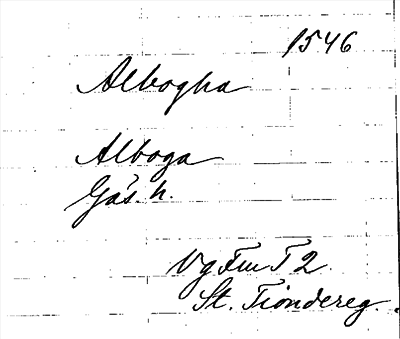 1546
Albogha
Alboga
Gäs. h.
Vg Fm T 2
St. Tiondereg.